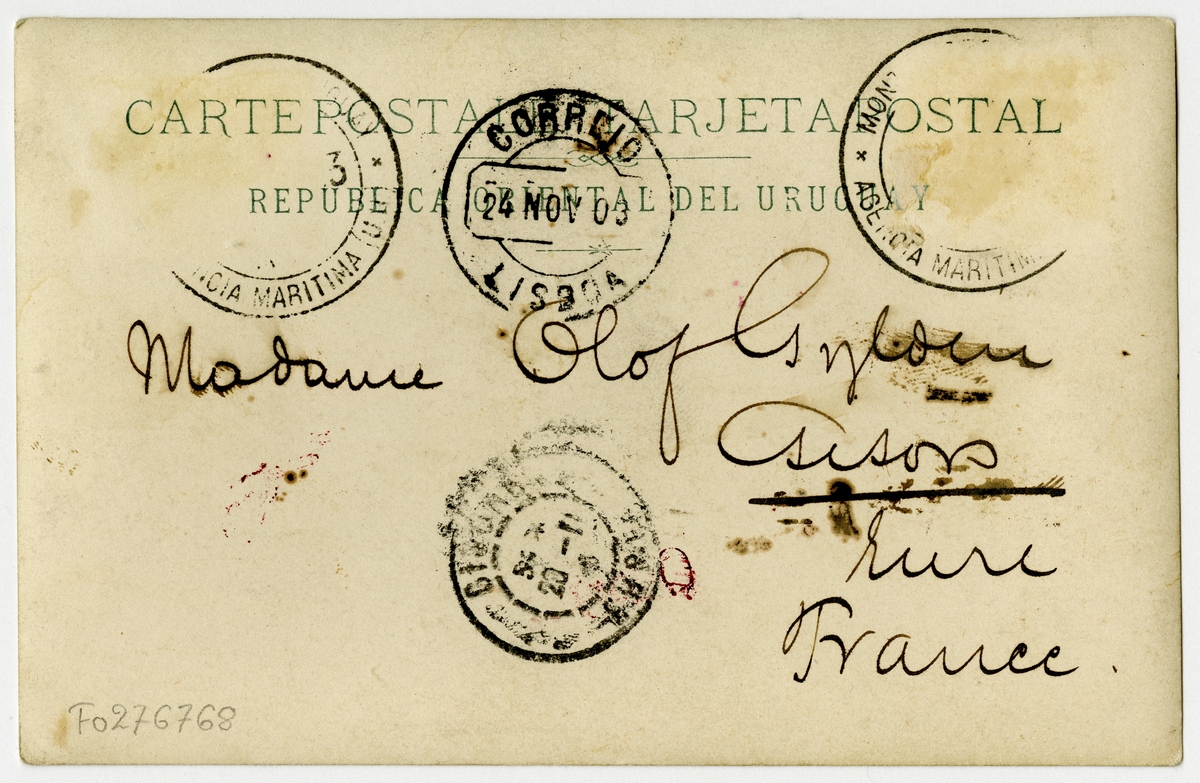 CARTE POSTALE TARJETA POSTAL
REPÚBLICA ORIENTAL DEL URUGUAY
3
NCIA MARITIMA (U
CORREIO
24 NOV 03
LISBOA
MON
AGENCIA MARITIM
Madame Olof Gylden
Gisors
Eure
France.
GISORS
EURE
Fo276768